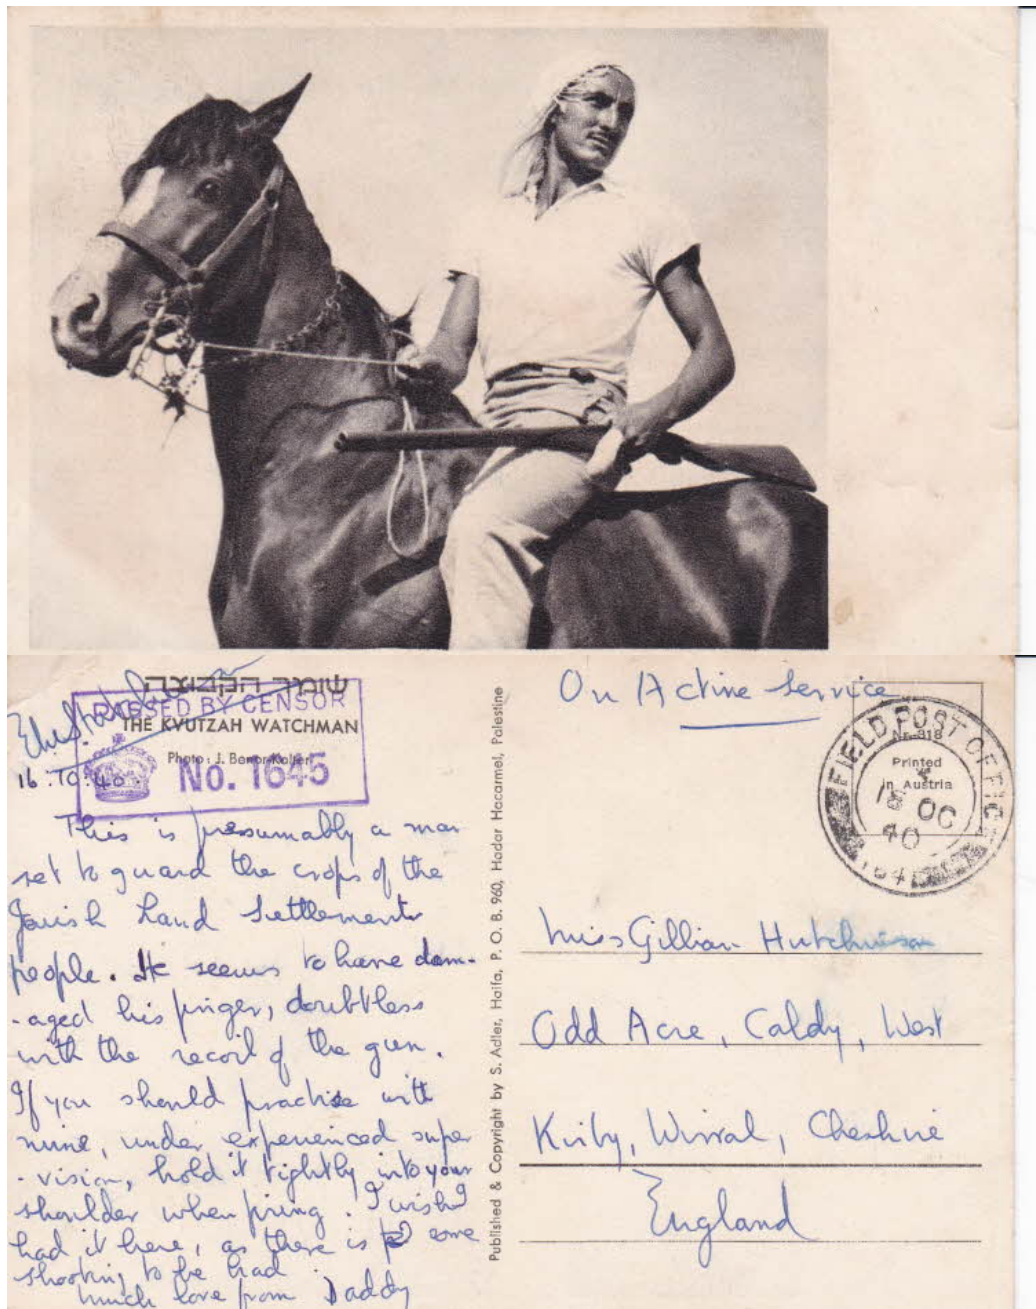 שומר הקבוצה
PASSED BY CENSOR
THE KVUTZAH WATCHMAN
Photo: J. Benor-Kalter
No. 1645
16.10.40.
This is presumably a man
set to guard the crops of the
Jewish Land Settlement
people. He seems to have dam-
-aged his finger, doubtless
with the recoil of the gun.
If you should practise with
mine, under experienced super
-vision, hold it tightly into your
shoulder when firing. I wish I
had it here, as there is some
shooting to be had.
Much love from Daddy
Published & Copyright by S. Adler, Haifa, P. O. B. 960, Hadar Hacarmel, Palestine
On Active Service
Nr. 318
Printed
in Austria
FIELD POST OFFICE
OC
40
Miss Gillian Hutchinson
Odd Acre, Caldy, West
Kirby, Wirral, Cheshire
England